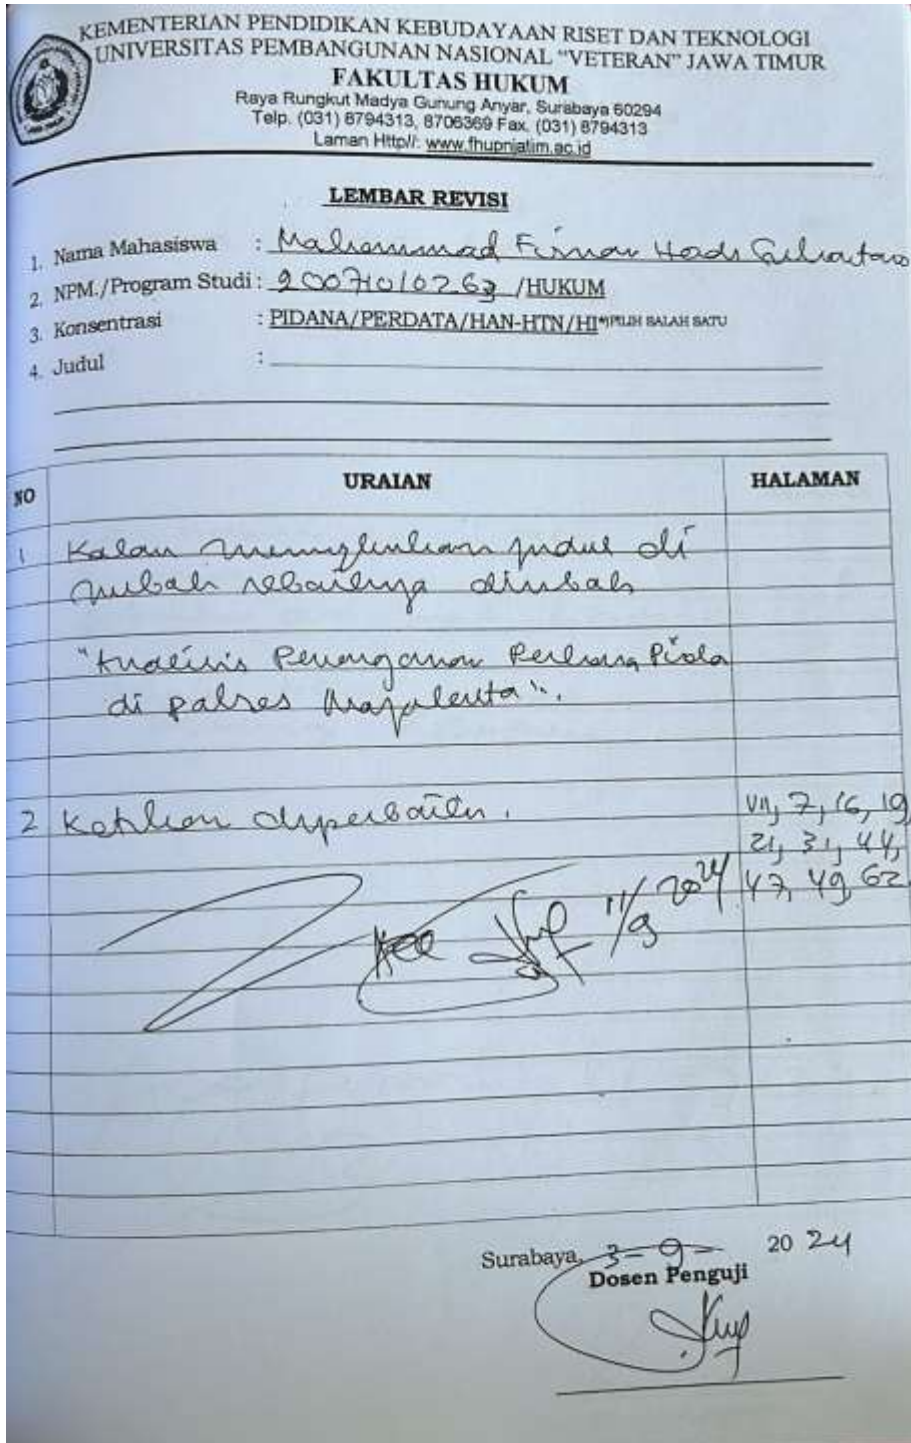 KEMENTERIAN PENDIDIKAN KEBUDAYAAN RISET DAN TEKNOLOGI
UNIVERSITAS PEMBANGUNAN NASIONAL "VETERAN" JAWA TIMUR
FAKULTAS HUKUM
Raya Rungkut Madya Gunung Anyar, Surabaya 60294
Telp. (031) 8794313, 8706369 Fax. (031) 8794313
Laman Http//: www.fhupnjatim.ac.id
LEMBAR REVISI
1. Nama Mahasiswa : Mahammad Firman Hadi
2. NPM./Program Studi : 20071010263 /HUKUM
3. Konsentrasi : PIDANA/PERDATA/HAN-HTN/HI*)PILIH SALAH SATU
4. Judul :
NO URAIAN HALAMAN
1 Kalau memungkinkan judul di
rubah sebaiknya diubah
"Analisis Penanganan Perkara Pidana
di polres Mojokerto".
2 Ketikan diperbaiki. VII, 7, 16, 19
21, 31, 44,
47, 49, 62
Acc 11/9 2024
Surabaya, 3-9- 2024
Dosen Penguji